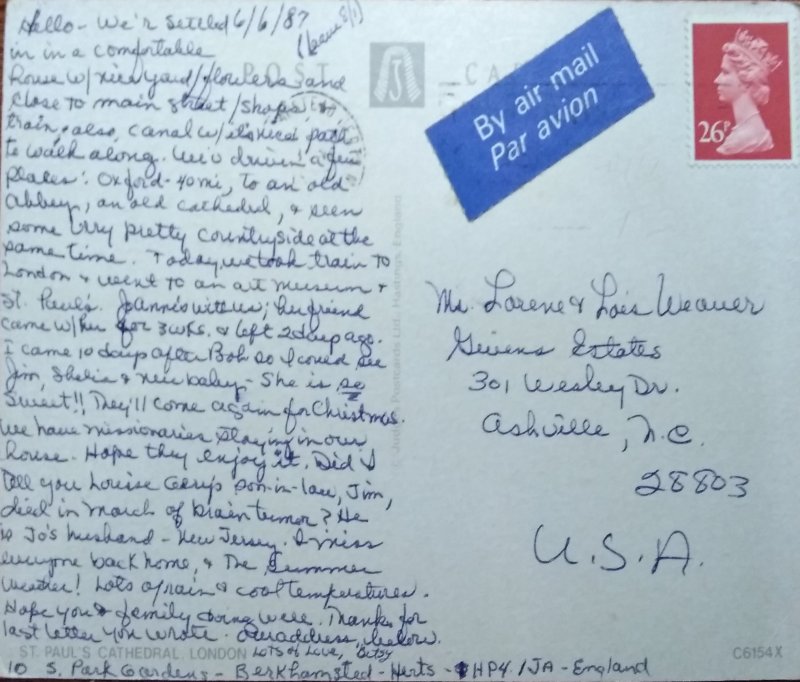 Hello - We'r settled 6/6/87
in in a comfortable (leave 8/1)
house w/nice yard/flowers and
close to main street/shops &
train, also, canal w/ nice path
to walk along. We'v driven a few
places: Oxford - 40 mi, to an old
abbey, an old cathedral, & seen
some very pretty countryside at the
same time. Today we took train to
London & went to an art museum &
St. Paul's. Joanne's with us; her friend
came w/her for 3 wks. & left 2 days ago.
I came 10 days after Bob so I could see
Jim, Shelia & new baby - She is so
sweet!! They'll come again for Christmas.
We have missionaries staying in our
house. Hope they enjoy it. Did I
tell you Louise son-in-law, Jim,
died in March of brain tumor? He
is Jo's husband - New Jersey. I miss
everyone back home, & the summer
weather! Lots of rain & cool temperatures.
Hope you & family doing well. Thanks for
last letter you wrote. Our address, below.
Lots of Love, Betsy
10 S. Park Gardens - Berkhamsted - Herts - HP4 1JA - England
POST CA
By air mail
Par avion
26P
Lorene & Lois Weaver
Givens Estates
301 Wesley Dr.
Ashville, N.C.
28803
U.S.A.
Postcards Ltd., Hastings, England
ST. PAUL'S CATHEDRAL, LONDON
C6154X